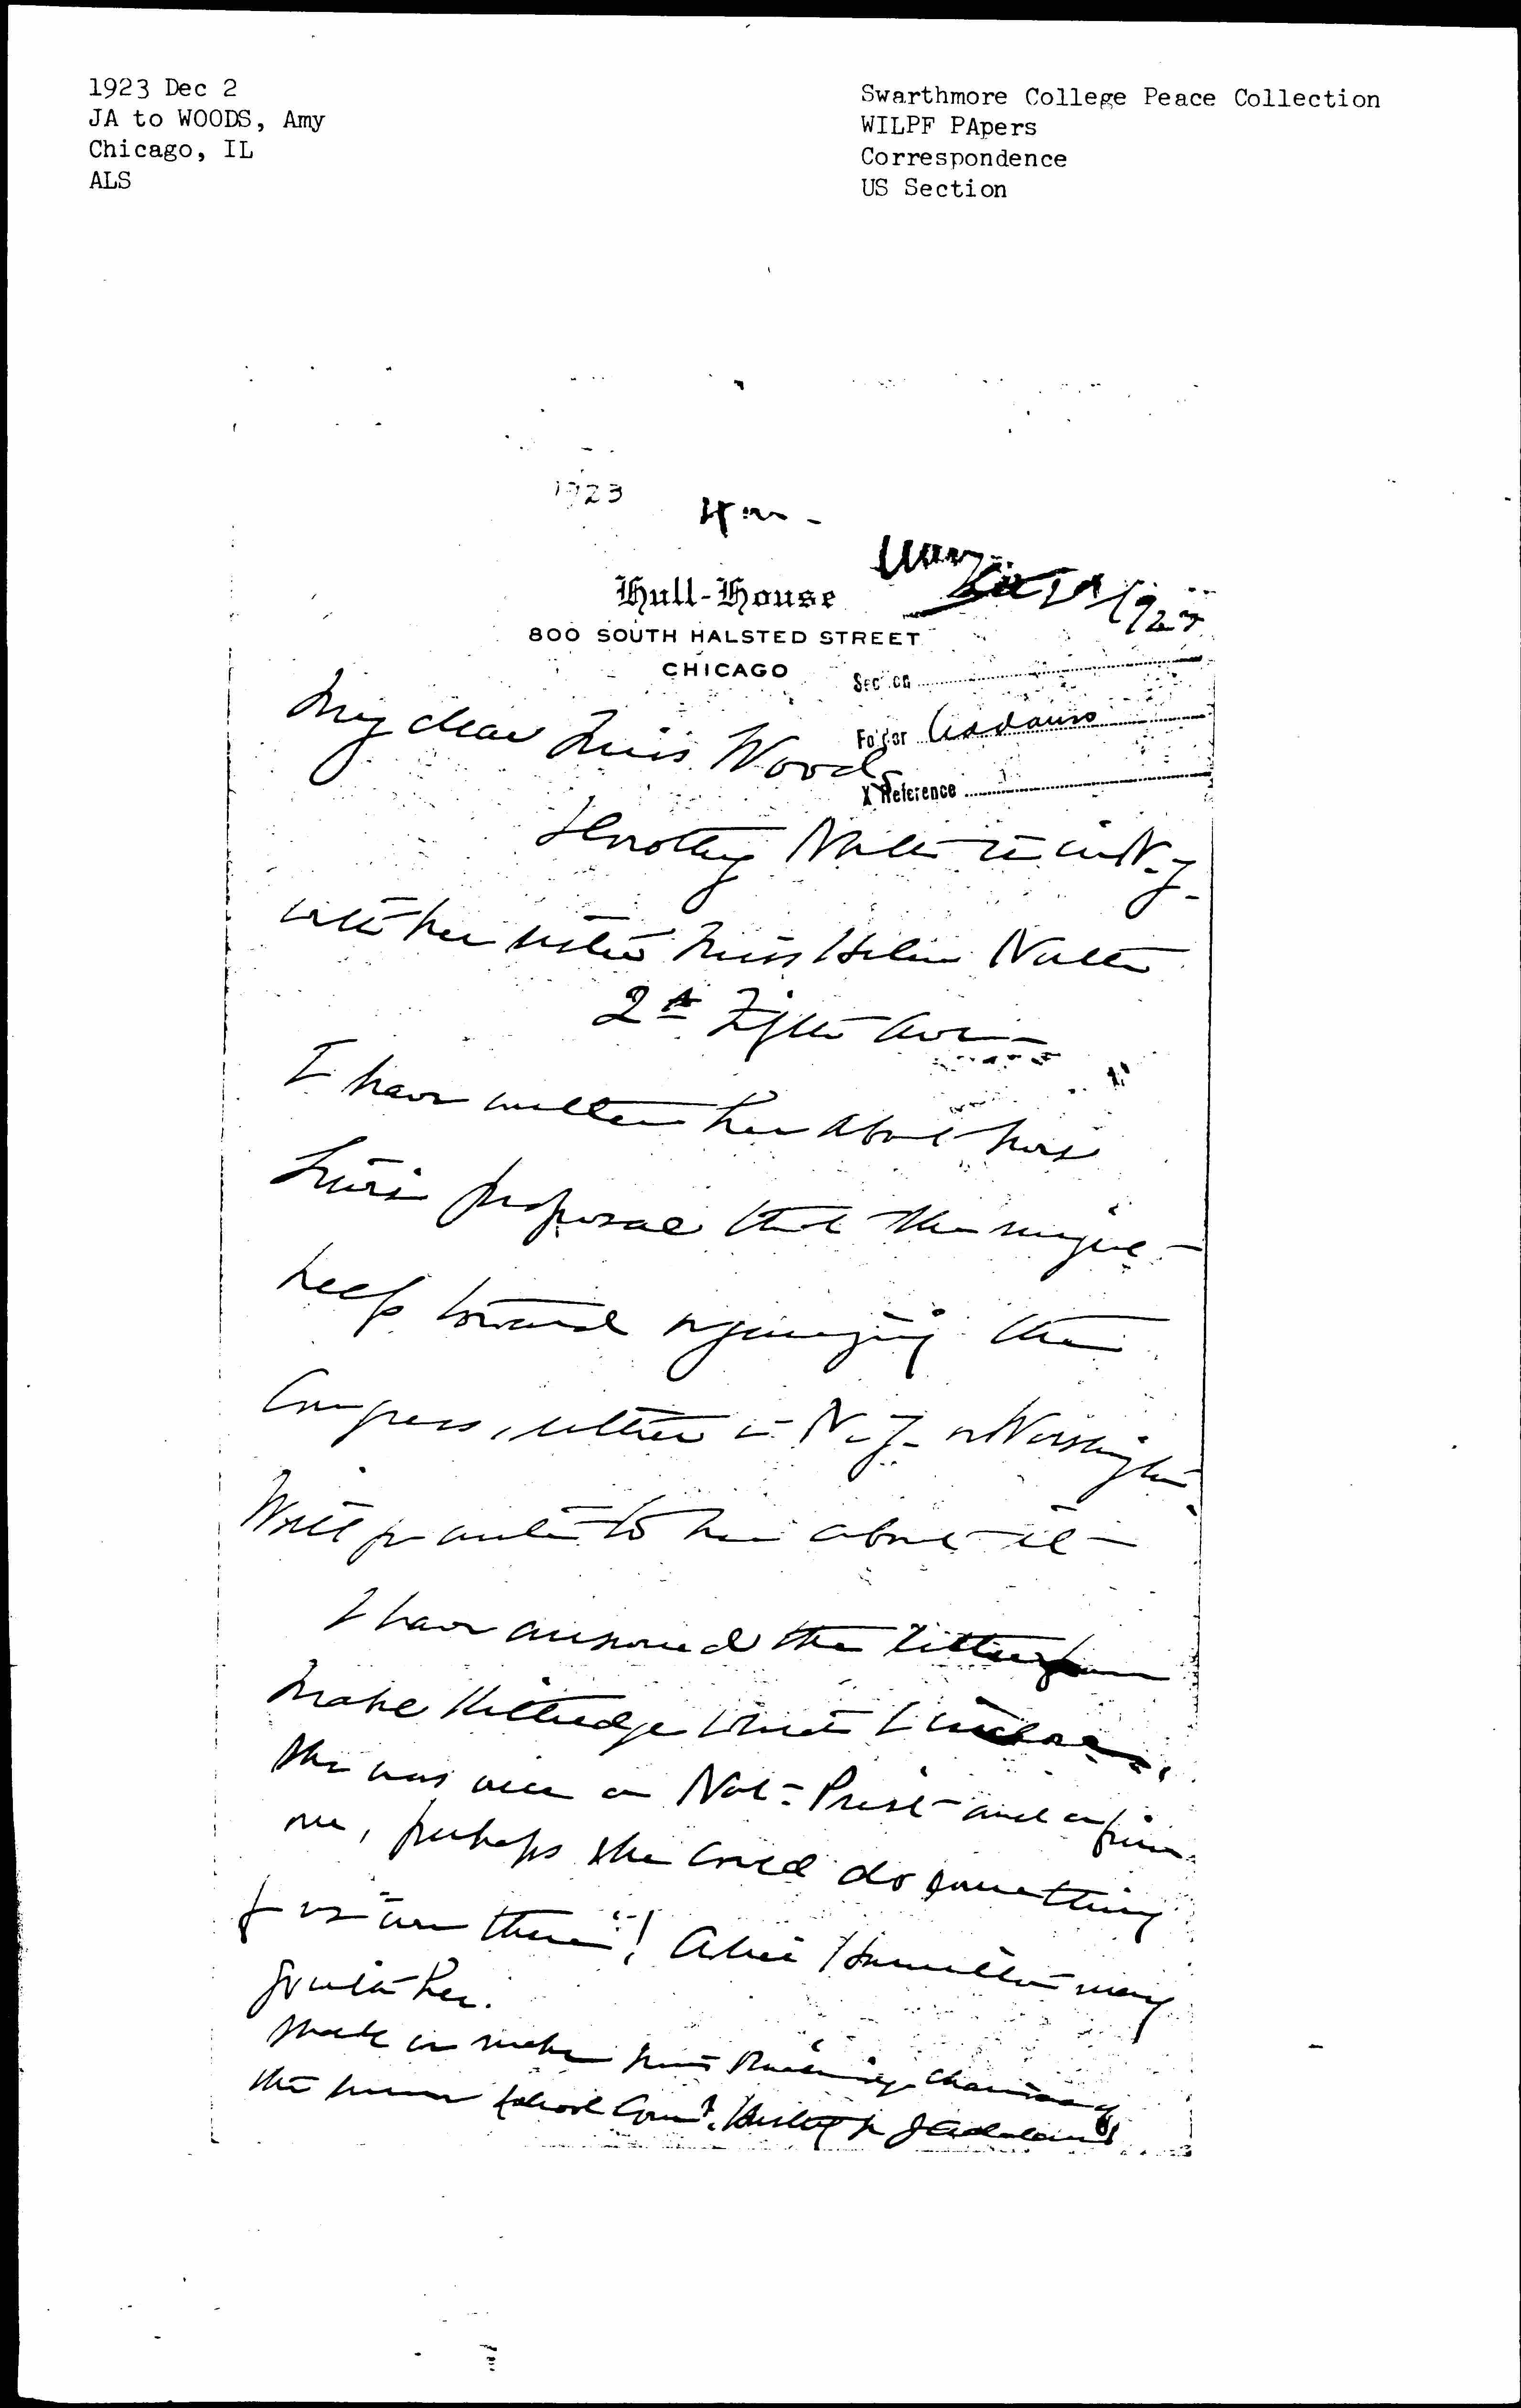 1923 Dec 2
JA to WOODS, Amy
Chicago, IL
ALS
Swarthmore College Peace Collection
WILPF PApers
Correspondence
US Section
1923
Hull-House
800 SOUTH HALSTED STREET
CHICAGO
Section
Folder Addams
X Reference
My dear Miss Woods
Dorothy North is in N.Y.
with her sister Miss Helen North
Fifth Ave
I have written her about
proposal that she might
help toward organizing the
Congress, either in N.Y. or Washington
Will you write to her about it
I have answered the letter from
Mabel Kittredge which I
She was once a Nat. Prest and a fine
one, perhaps she could do something
for us "over there"! Alice Hamilton may
go with her.
Shall we make Miss chairman of
the summer school Com't. Hastily yr J Addams